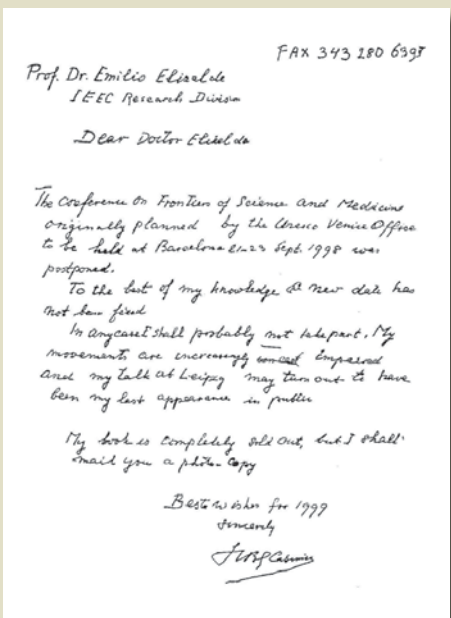 FAX 343 280 6393
Prof. Dr. Emilio Elizalde
IEEC Research Division
Dear Doctor Elizalde
The Coeference on Frontiers of Science and Medicine
originally planned by the Unesco Venice Office
to be held at Barcelona 21-23 Sept. 1998 was
postponed.
To the best of my knowledge a new date has
not been fixed
In any case I shall probably not take part. My
movements are increasingly impaired
and my talk at Leipzig may turn out to have
been my last appearance in public
My book is completely sold out, but I shall
mail you a photo-copy
Best wishes for 1999
Sincerely
HBG Casimir